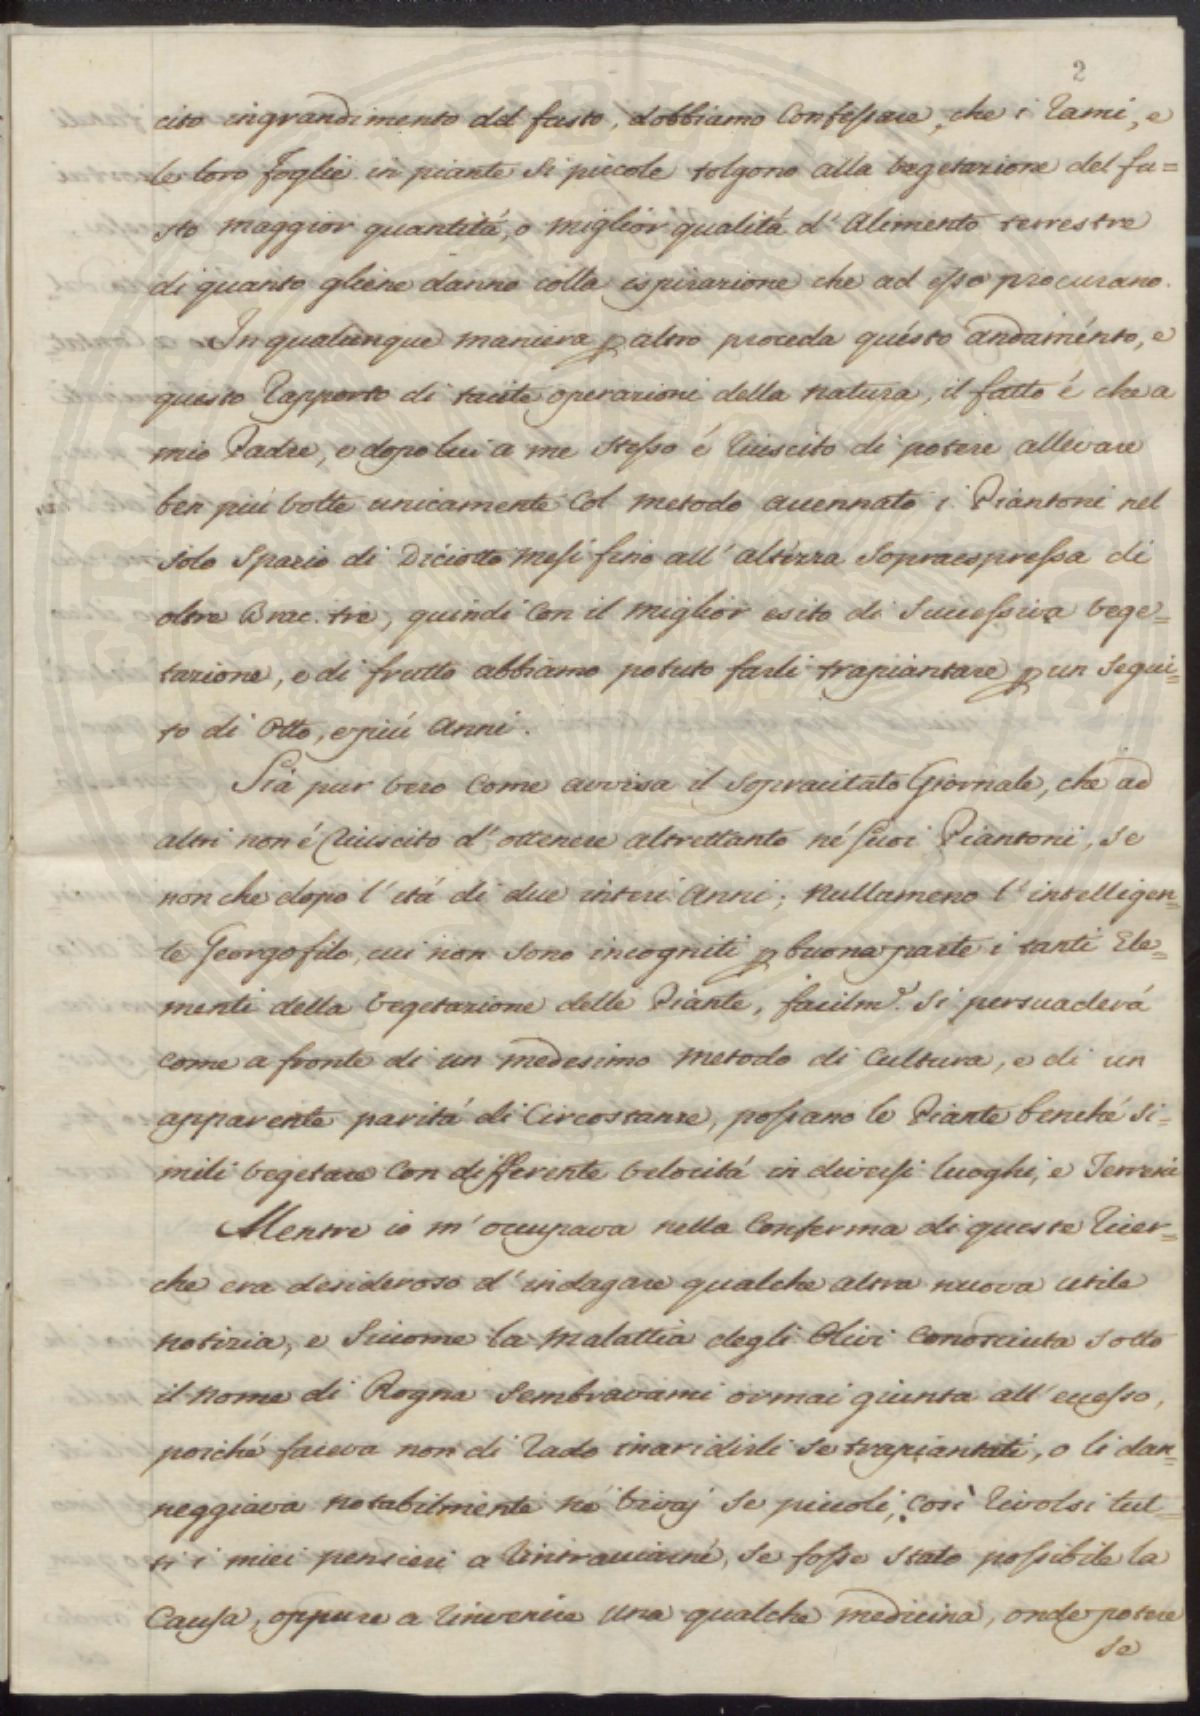 2
cito ingrandimento del fusto, dobbiamo Confessare, che i Rami, e
le loro Foglie in piante si piccole tolgono alla vegetazione del fu=
sto maggior quantitá, o miglior qualitá d'Alimento terrestre
di quanto gliene danno colla ispirazione che ad esso procurano.
In qualunque maniera p altro proceda questo andamento, e
questo Rapporto di tacite operazioni della natura, il fatto é che a
mio Padre, e dopo lui a me stesso é Riuscito di potere allevare
ben piú volte unicamente Col metodo accennato i Piantoni nel
solo Spazio di Diciotto mesi fino all'altezza Sopraespressa di
oltre Brac. tre, quindi Con il miglior esito di Successiva vege=
tazione, e di frutto abbiamo potuto farli trapiantare p un Segui=
to di Otto, e piú Anni.
Sia pur vero Come avvisa il Sopracitato Giornale, che ad
altri non é Riuscito d'ottenere altrettanto né suoi Piantoni, Se
non che dopo l'etá di due interi Anni; Nullameno l'intelligen=
te Georgofilo, cui non sono incogniti p buona parte i tanti Ele=
menti della Vegetazione delle Piante, facilm.e Si persuaderá
come a fronte di un medesimo metodo di Cultura, e di un
apparente paritá di Circostanze, possano le Piante benché Si=
mili vegetare Con differente velocitá in diversi luoghi, e Terreni
Mentre io m'occupava nella Conferma di queste Ricer=
che era desideroso d'indagare qualche altra nuova utile
notizia, e Siccome la Malattia degli Olivi Conosciuta Sotto
il nome di Rogna Sembravami ormai giunta all'eccesso,
poiché faceva non di Rado inaridirli se trapiantati, o li dan=
neggiava notabilmente né vivaj Se piccoli, Così Rivolsi tut=
ti i miei pensieri a Rintracciarne, Se fosse stato possibile la
Causa, oppure a Rinvenire una qualche medicina, onde potere
se